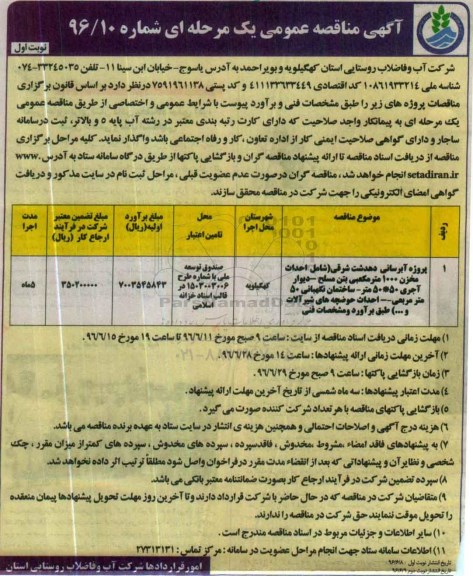 آگهی مناقصه عمومی یک مرحله ای شماره ۹۶/۱۰
نوبت اول
شرکت آب وفاضلاب روستایی استان کهگیلویه و بویراحمد به آدرس یاسوج- خیابان ابن سینا ۱۱- تلفن ۳۳۲۴۵۰۳۵-۰۷۴
شناسه ملی ۱۰۸۶۱۹۳۳۲۱۴ کد اقتصادی ۴۱۱۱۳۲۶۳۳۴۴۹ و کد پستی ۷۵۹۱۹۶۱۱۳۸ درنظر دارد بر اساس قانون برگزاری
مناقصات پروژه های زیر را طبق مشخصات فنی و برآورد پیوست با شرایط عمومی و اختصاصی از طریق مناقصه عمومی
یک مرحله ای به پیمانکار واجد صلاحیت که دارای کارت رتبه بندی معتبر در رشته آب پایه ۵ و بالاتر، ثبت درسامانه
ساجار و دارای گواهی صلاحیت ایمنی کار از اداره تعاون ،کار و رفاه اجتماعی باشد واگذار نماید. کلیه مراحل برگزاری
مناقصه از دریافت اسناد مناقصه تا ارائه پیشنهاد مناقصه گران و بازگشایی پاکتها از طریق درگاه سامانه ستاد به آدرس www.
setadiran.ir انجام خواهد شد، مناقصه گران درصورت عدم عضویت قبلی ، مراحل ثبت نام در سایت مذکور و دریافت
گواهی امضای الکترونیکی را جهت شرکت در مناقصه محقق سازند.
ردیف
موضوع مناقصه
شهرستان محل اجرا
محل تامین اعتبار
مبلغ برآورد اولیه(ریال)
مبلغ تضمین معتبر شرکت در فرآیند ارجاع کار (ریال)
مدت اجرا
۱
پروژه آبرسانی دهدشت شرقی(شامل احداث
مخزن ۱۰۰۰ مترمکعبی بتن مسلح -دیوار
آجری ۵۰*۵۰ متر- ساختمان نگهبانی ۵۰
متر مربعی-– احداث حوضچه های شیرآلات
و ...) طبق برآورد ومشخصات فنی
کهگیلویه
صندوق توسعه
ملی با شماره طرح
۱۵۰۳۰۰۳۰۰۶ در
قالب اسناد خزانه
اسلامی
۷۰۰۳۵۴۵۸۴۳
۳۵۰۲۰۰۰۰۰
۵ماه
۱) مهلت زمانی دریافت اسناد مناقصه از سایت : ساعت ۹ صبح مورخ ۹۶/۶/۱۱ تا ساعت ۱۹ مورخ ۹۶/۶/۱۵.
۲) آخرین مهلت زمانی ارائه پیشنهادها: ساعت ۱۴ مورخ ۹۶/۶/۲۸.
۳) زمان بازگشایی پاکتها: ساعت ۹ صبح مورخ ۹۶/۶/۲۹.
۴) مدت اعتبار پیشنهادها: سه ماه شمسی از تاریخ آخرین مهلت ارائه پیشنهاد.
۵) بازگشایی پاکتهای مناقصه با هر تعداد شرکت کننده صورت می گیرد .
۶) هزینه درج آگهی و اصلاحات احتمالی و همچنین هزینه ی انتشار در سایت ستاد به عهده برنده مناقصه می باشد.
۷) به پیشنهادهای فاقد امضاء ،مشروط ،مخدوش ، فاقدسپرده ، سپرده های مخدوش ، سپرده های کمتراز میزان مقرر ، چک
شخصی و نظایر آن و پیشنهاداتی که بعد از انقضاء مدت مقرر درفراخوان واصل شود مطلقاً ترتیب اثر داده نخواهد شد.
۸) سپرده تضمین شرکت در فرآیند ارجاع کار بصورت ضمانتنامه معتبر بانکی می باشد.
۹) متقاضیان شرکت در مناقصه که در حال حاضر با شرکت قرارداد دارند وتا آخرین روز مهلت تحویل پیشنهادها پیمان منعقده
را تحویل موقت ننمایند حق شرکت در مناقصه را ندارند.
۱۰) سایر اطلاعات و جزئیات مربوط در اسناد مناقصه مندرج است .
۱۱) اطلاعات سامانه ستاد جهت انجام مراحل عضویت در سامانه : مرکز تماس : ۲۷۳۱۳۱۳۱
امور قراردادها شرکت آب وفاضلاب روستایی استان